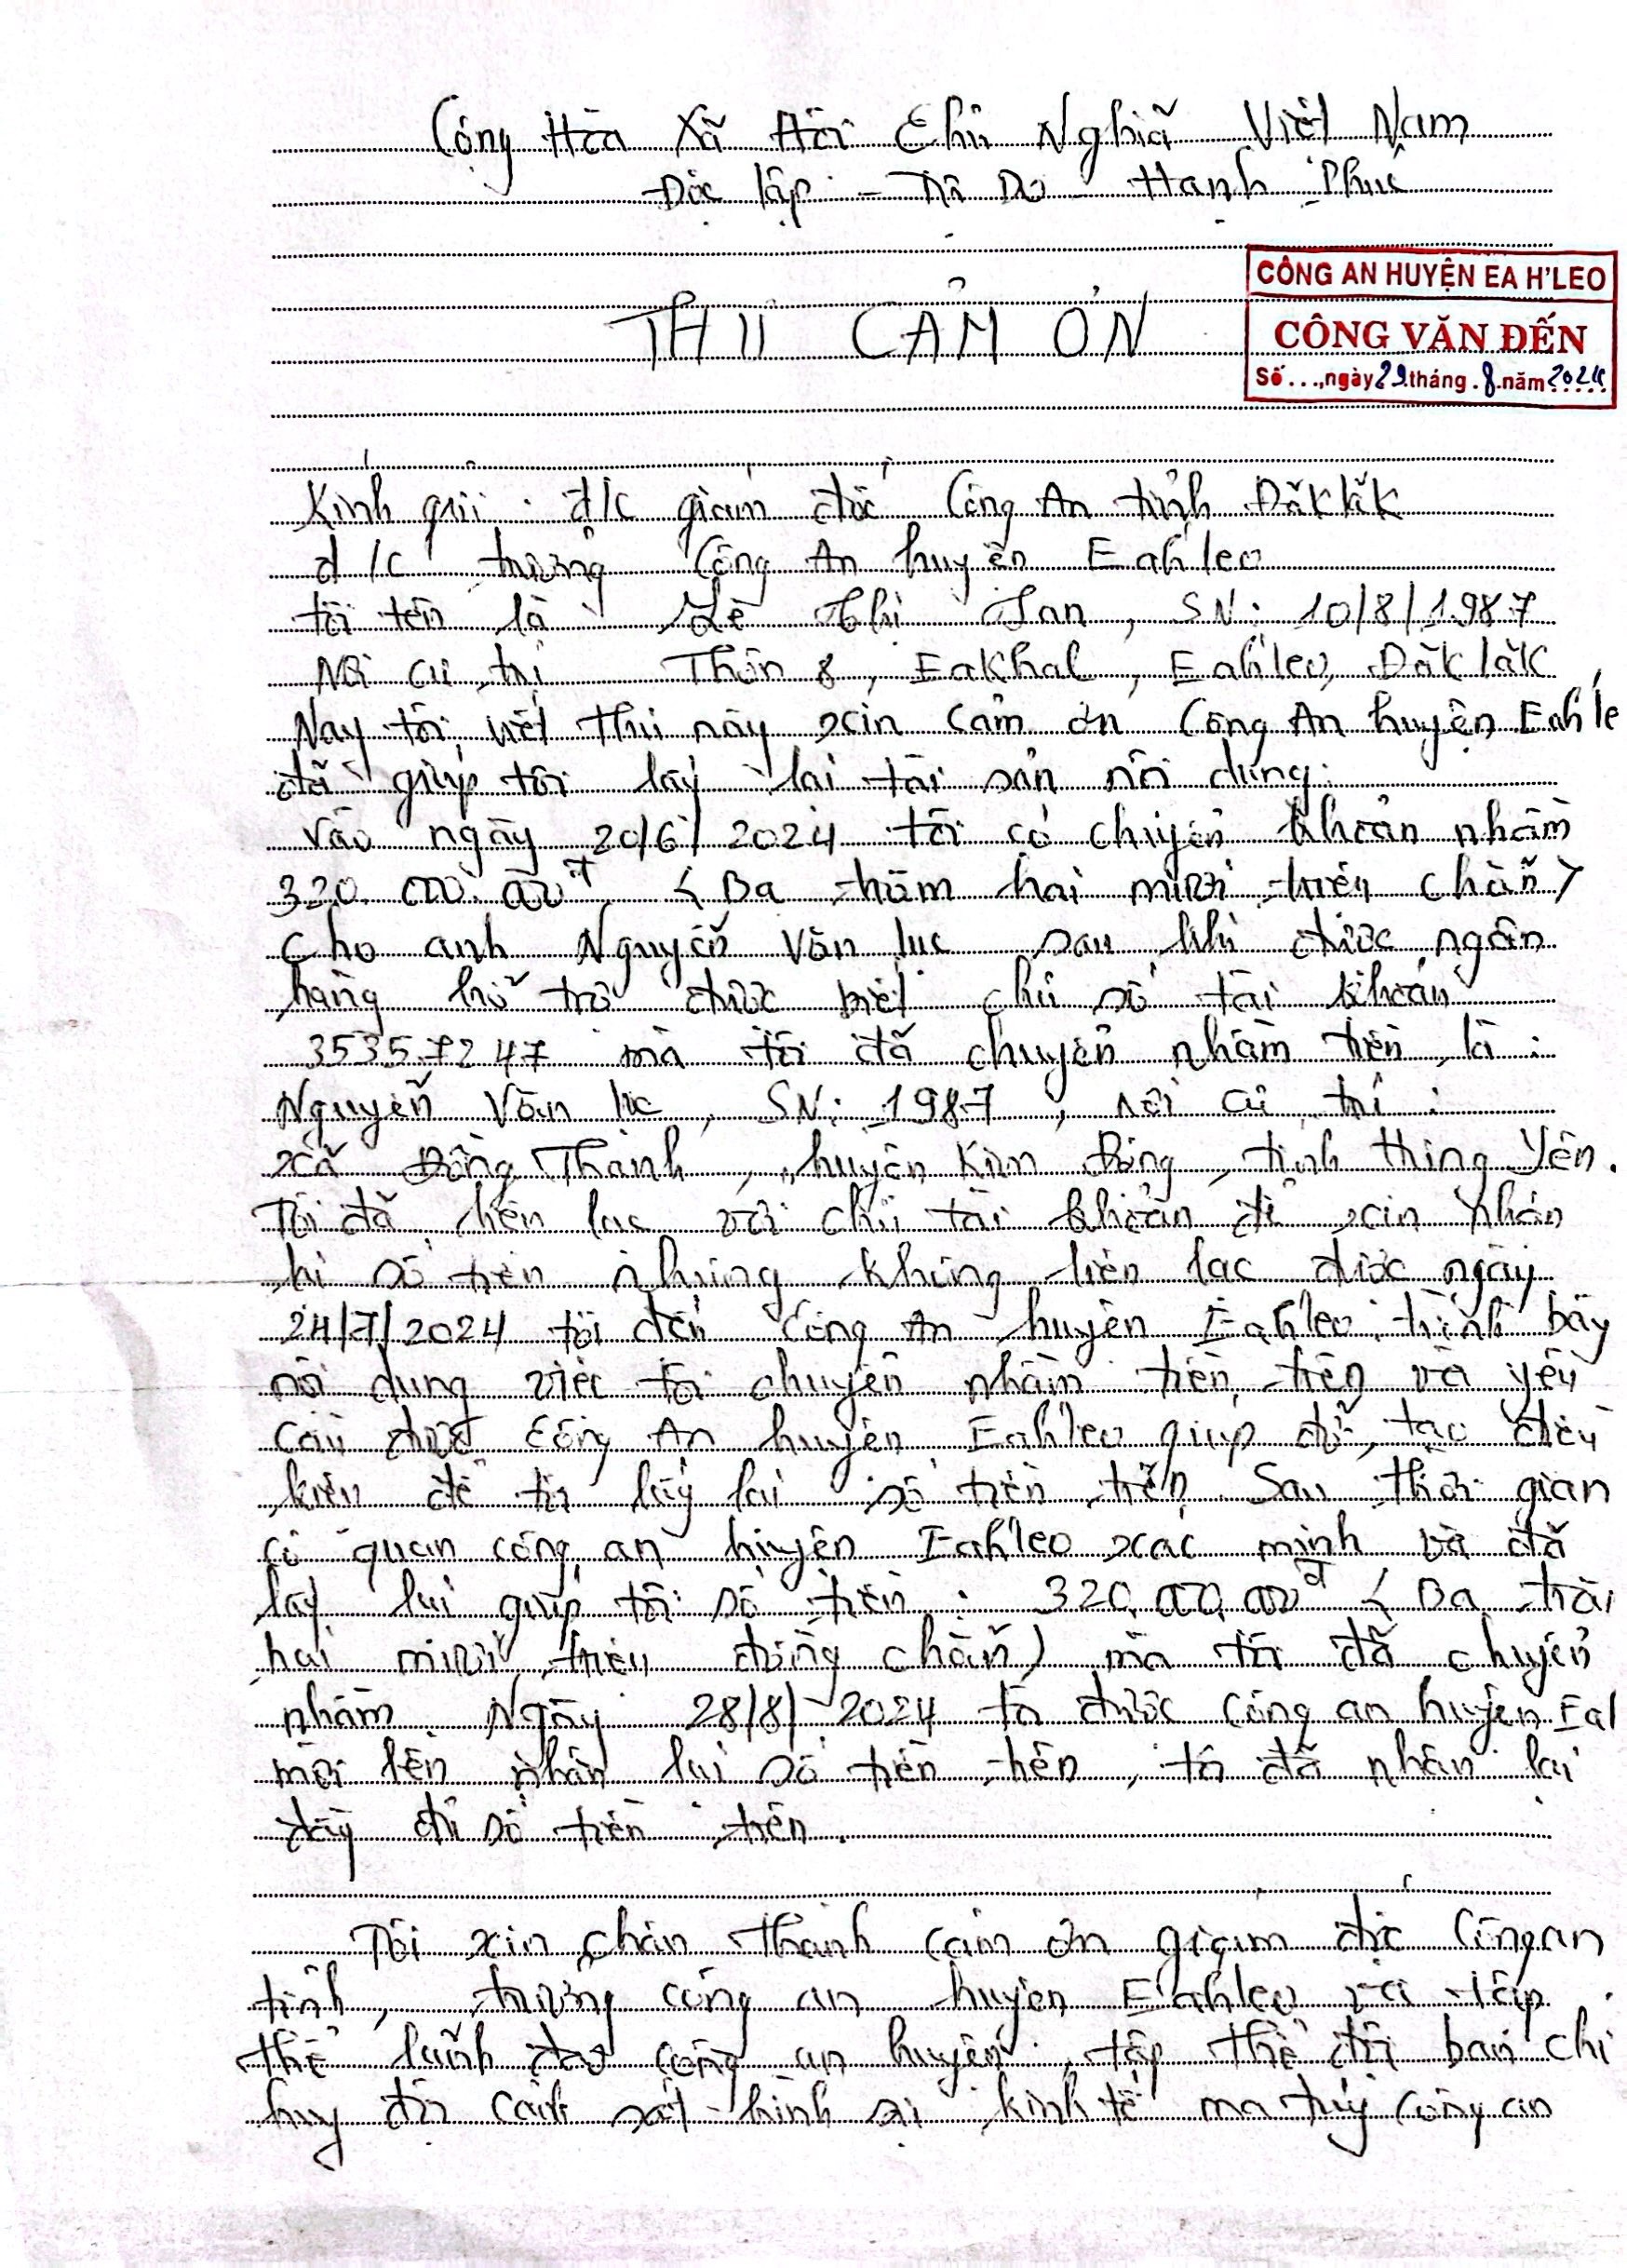 Cộng Hòa Xã Hội Chủ Nghĩa Việt Nam
Độc lập - Tự Do Hạnh Phúc
CÔNG AN HUYỆN EA H'LEO
CÔNG VĂN ĐẾN
Số...,ngày 29 tháng 8 năm 2024
THƯ CẢM ƠN
Kính gửi : đ/c giám đốc Công An tỉnh ĐăkLăk
đ/c trưởng Công An huyện Eah'leo
tôi tên là Lê Thị Lan, SN: 10/8/1987
Nơi cư trú Thôn 8, EaKhal, Eah'leo, ĐăkLăk
Nay tôi viết thư này xin cảm ơn Công An huyện Eah'le
đã giúp tôi lấy lại tài sản nội dung:
Vào ngày 20/6/2024 tôi có chuyển khoản nhầm
320.000.000đ (Ba trăm hai mươi triệu chẵn)
cho anh Nguyễn Văn lực sau khi được ngân
hàng hỗ trợ được biết chủ số tài khoản
35357247 mà tôi đã chuyển nhầm tiền là :
Nguyễn Văn lực, SN: 1987, nơi cư trú :
xã Đồng Thanh, huyện Kim Động, tỉnh Hưng Yên.
Tôi đã liên lạc với chủ tài khoản để xin nhận
lại số tiền nhưng không liên lạc được ngày
24/7/2024 tôi đến Công An huyện Eah'leo trình bày
nội dung việc tôi chuyển nhầm tiền trên và yêu
cầu được Công An huyện Eah'leo giúp đỡ, tạo điều
kiện để tôi lấy lại số tiền trên. Sau thời gian
cơ quan công an huyện Eah'leo xác minh và đã
lấy lại giúp tôi số tiền : 320.000.000đ (Ba trăm
hai mươi triệu đồng chẵn) mà tôi đã chuyển
nhầm. Ngày 28/8/2024 tôi được công an huyện Eal
mời lên nhận lại số tiền trên, tôi đã nhận lại
đầy đủ số tiền trên.
Tôi xin chân thành cảm ơn giám đốc Công an
tỉnh, trưởng công an huyện Eahleo và tập
thể lãnh đạo công an huyện, tập thể đội ban chỉ
huy đội cảnh sát hình sự kinh tế ma túy công an